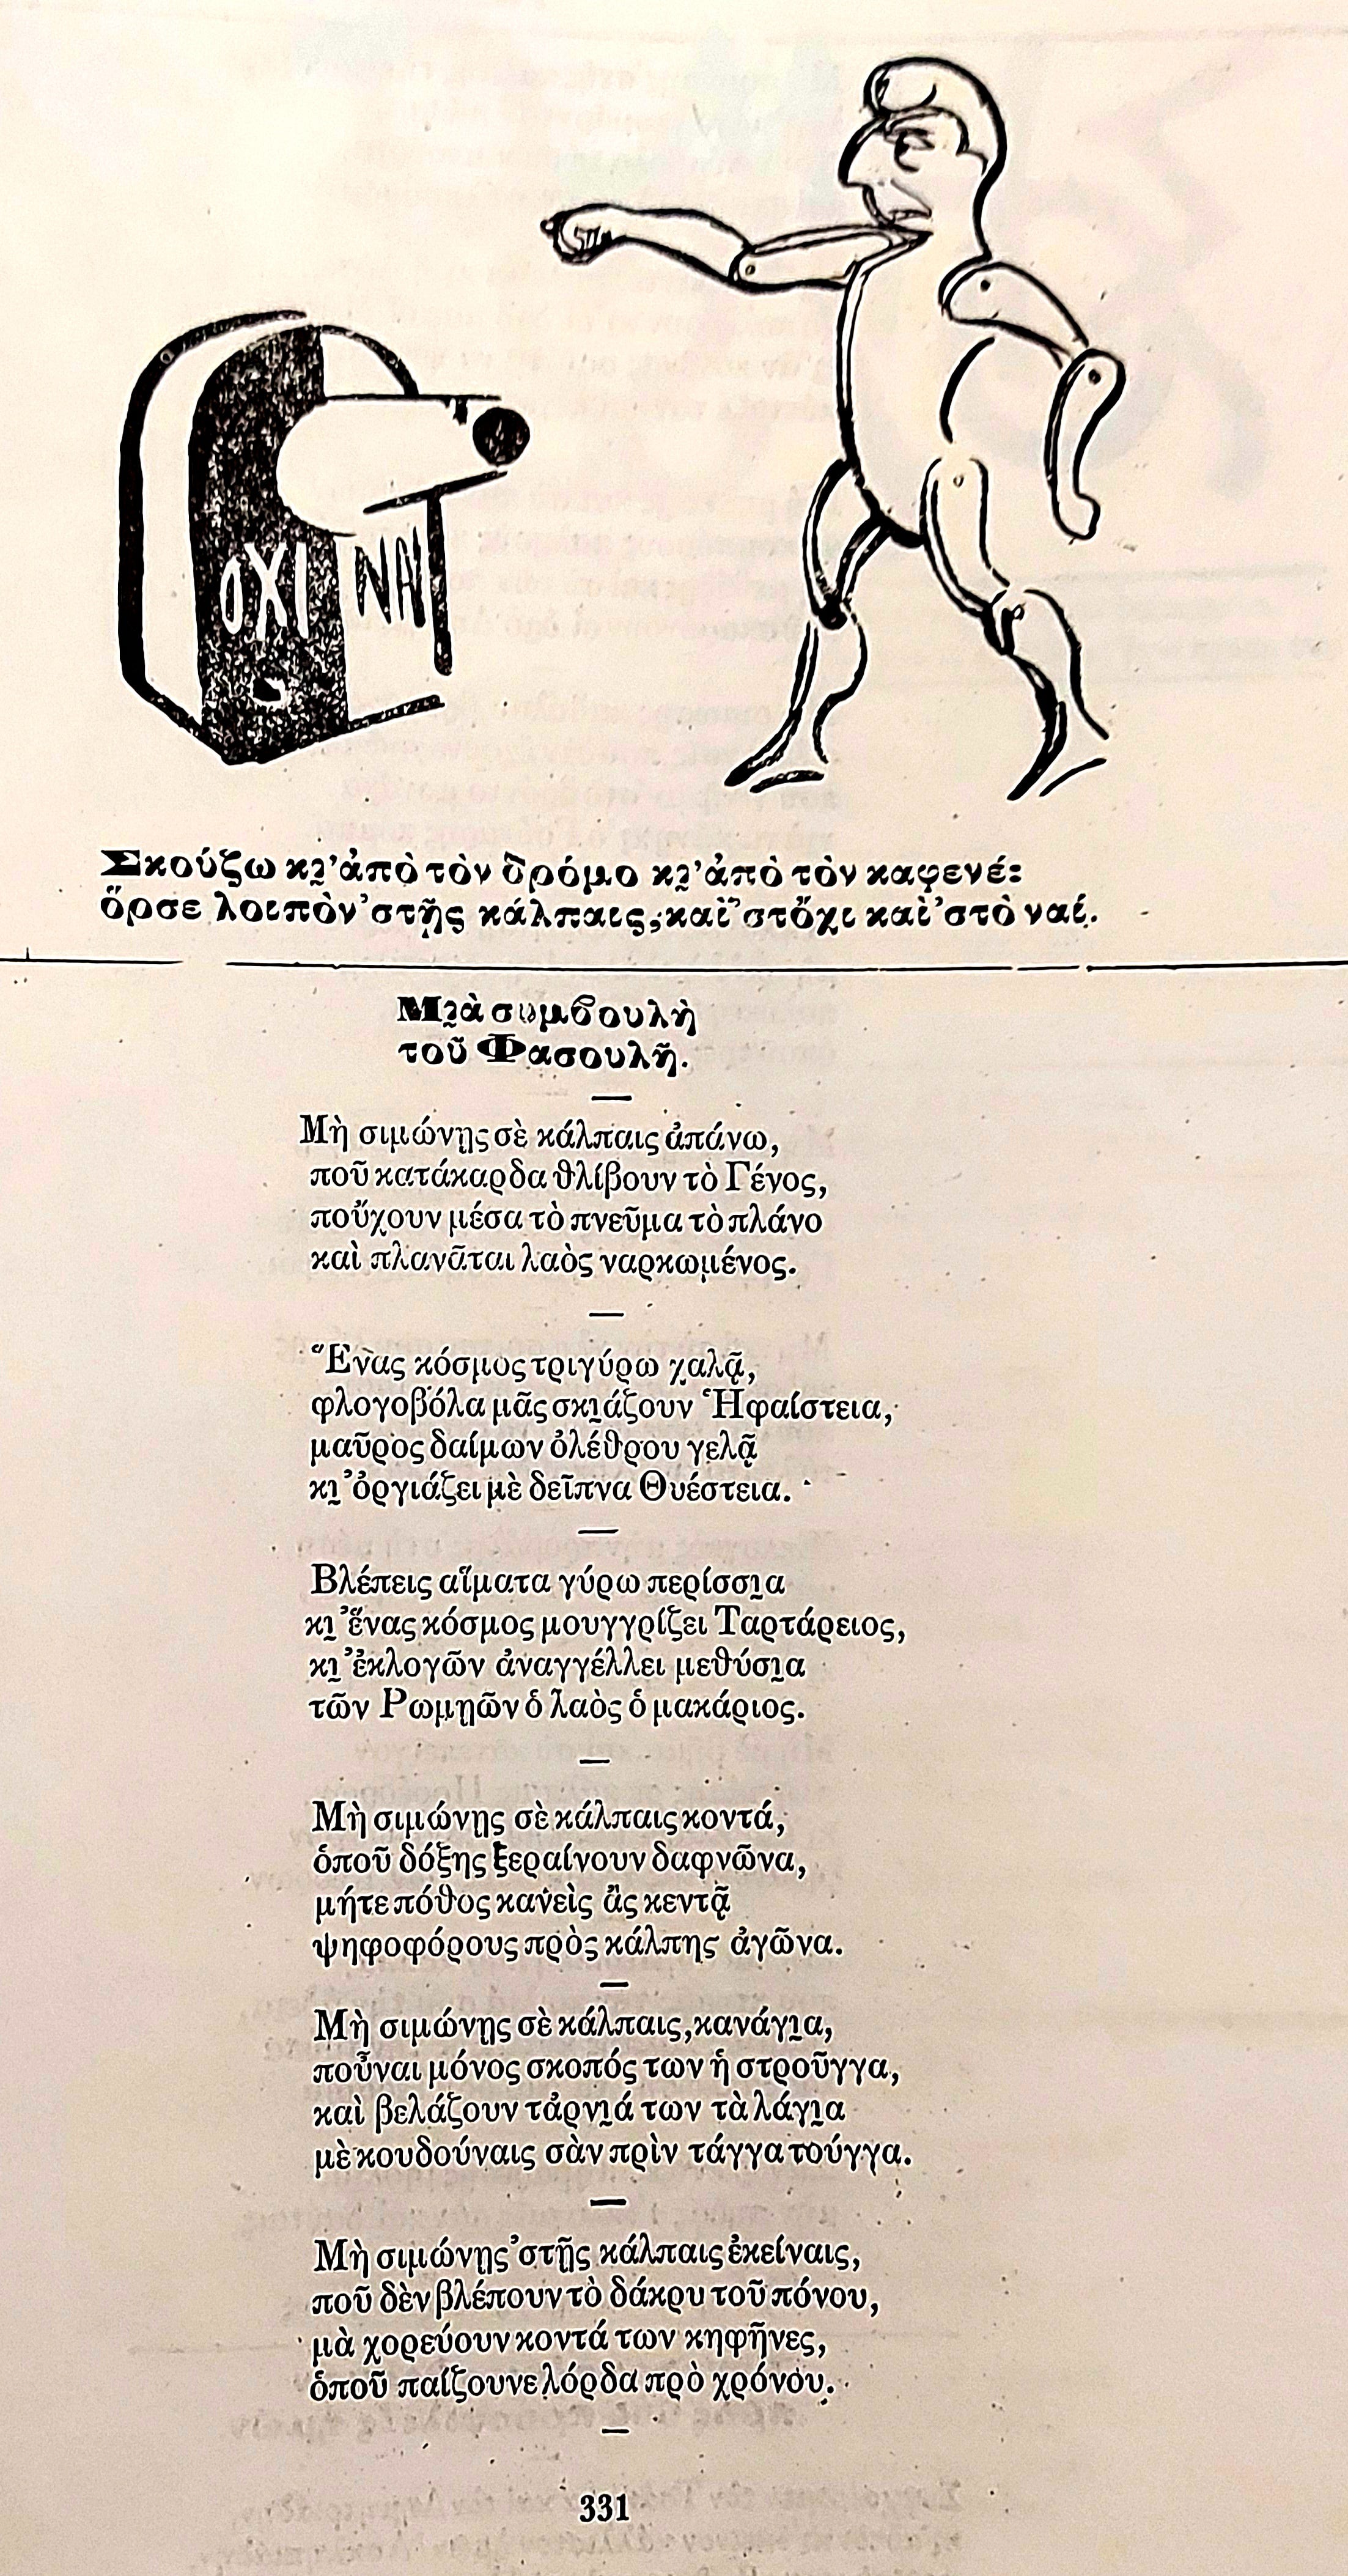 ΟΧΙ ΝΑΙ
Σκούζω κι̯ ’ἀπὸ τὸν δρόμο κι̯ ’ἀπὸ τὸν καφενέ:
ὅρσε λοιπὸν ’στῇς κάλπαις, καὶ ’στὤχι καὶ ’στὸ ναί.
Μι̯ὰ συμβουλὴ
τοῦ Φασουλῆ.
Μὴ σιμώνῃς σὲ κάλπαις ἀπάνω,
ποῦ κατάκαρδα θλίβουν τὸ Γένος,
ποὔχουν μέσα τὸ πνεῦμα τὸ πλάνο
καὶ πλανᾶται λαὸς ναρκωμένος.
Ἕνας κόσμος τριγύρω χαλᾷ,
φλογοβόλα μᾶς σκι̯άζουν Ἡφαίστεια,
μαῦρος δαίμων ὀλέθρου γελᾷ
κι̯ ’ὀργιάζει μὲ δεῖπνα Θυέστεια.
Βλέπεις αἵματα γύρω περίσσι̯α
κι̯ ’ἕνας κόσμος μουγγρίζει Ταρτάρειος,
κι̯ ’ἐκλογῶν ἀναγγέλλει μεθύσι̯α
τῶν Ρωμῃῶν ὁ λαὸς ὁ μακάριος.
Μὴ σιμώνῃς σὲ κάλπαις κοντά,
ὁποῦ δόξης ξεραίνουν δαφνῶνα,
μήτε πόθος κανεὶς ἂς κεντᾷ
ψηφοφόρους πρὸς κάλπης ἀγῶνα.
Μὴ σιμώνῃς σὲ κάλπαις, κανάγι̯α,
ποὖναι μόνος σκοπός των ἡ στροῦγγα,
καὶ βελάζουν τἀρνι̯ά των τὰ λάγι̯α
μὲ κουδούναις σὰν πρὶν τάγγα τούγγα.
Μὴ σιμώνῃς ’στῇς κάλπαις ἐκείναις,
ποῦ δὲν βλέπουν τὸ δάκρυ τοῦ πόνου,
μὰ χορεύουν κοντά των κηφῆνες,
ὁποῦ παίζουνε λόρδα πρὸ χρόνου.
331